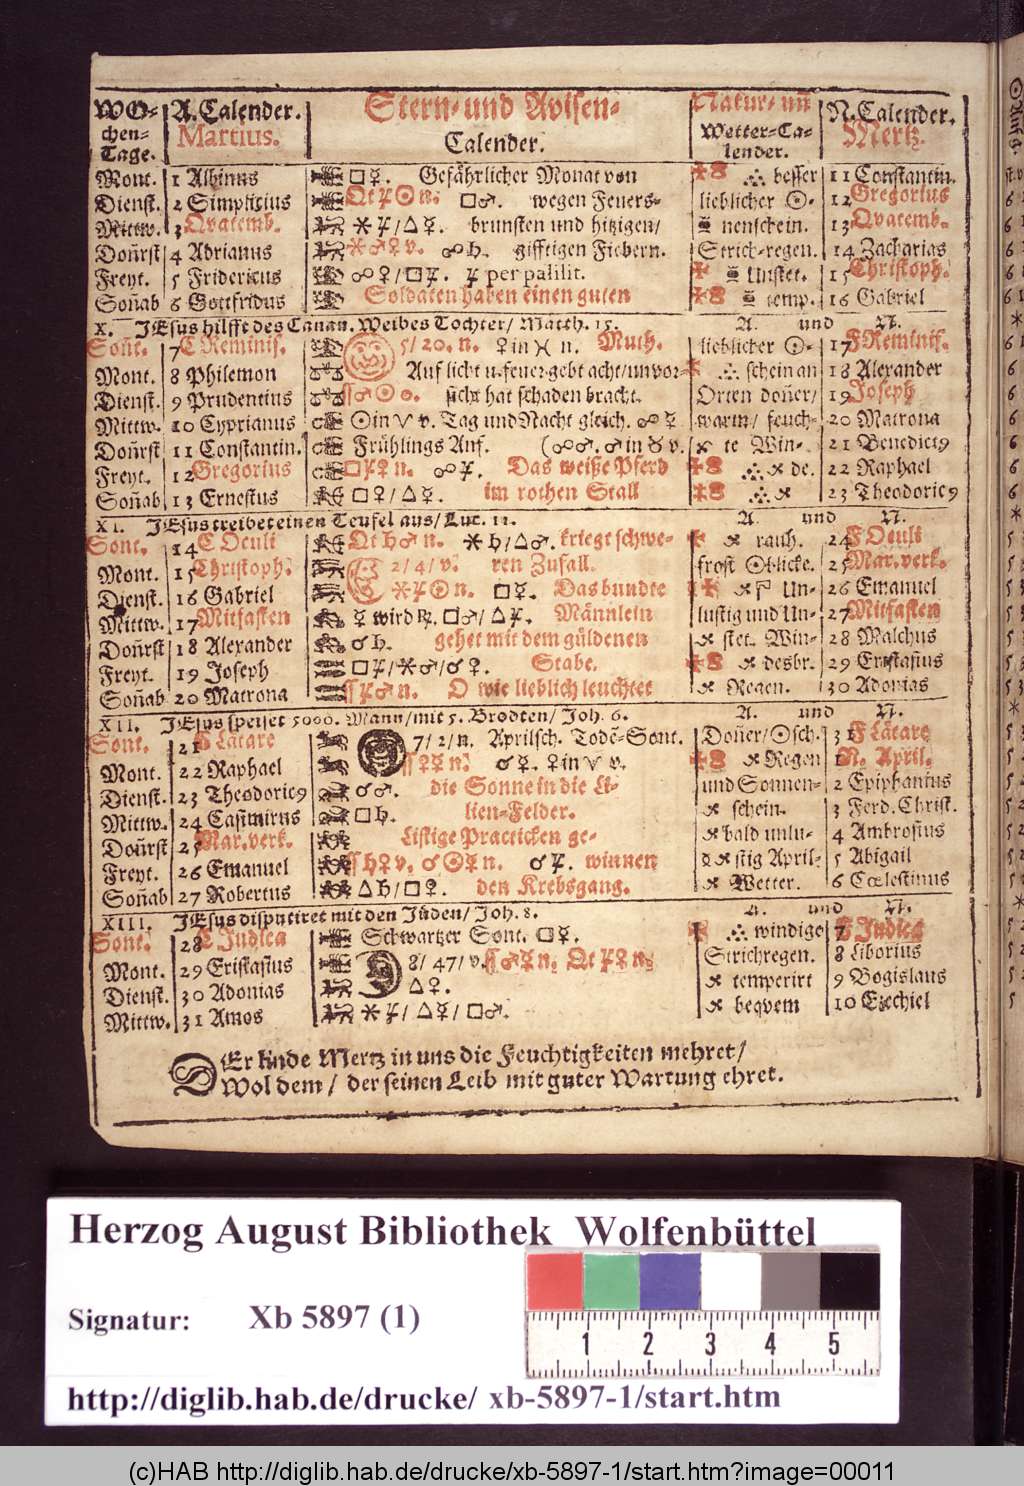 WO- A. Calender. Stern- und Avisen- Natur- uñ N. Calender.
chen- Martius. Calender. Wetter-Ca- Mertz.
Tage. lender.
Mont. 1 Albinus □☿. Gefährlicher Monat von ∴ besser 11 Constantin.
Dienst. 2 Simplitius □♂. wegen Feuers- lieblicher ☉- 12 Gregorius
Mittw. 3 Qvatemb. ⚹♃/△☿. brunsten und hitzigen/ nenschein. 13 Qvatemb.
Doñrst 4 Adrianus ⚹♂♀v. ☍♄. gifftigen Fiebern. Strich-regen. 14 Zacharias
Freyt. 5 Fridericus ☍♀/□♃. ♃ per palilit. Unstet. 15 Christoph.
Soñab 6 Gottfridus Soldaten haben einen guten temp. 16 Gabriel
X. JEsus hilfft des Canan. Weibes Tochter/ Matth. 15. A. und N.
Soñt. 7 C Reminis. 5/20. n. ♀ in ♓ n. Muth. lieblicher ☉- 17 F Reminis.
Mont. 8 Philemon Auf licht u. feuer gebt acht/ unvor- ∴ schein an 18 Alexander
Dienst. 9 Prudentius sicht hat schaden bracht. Orten doñer/ 19 Joseph
Mittw. 10 Cyprianus ☉ in ♈ v. Tag und Nacht gleich. ☍☿ warm/ feuch- 20 Matrona
Doñrst 11 Constantin. Frühlings Anf. (☍♂. ♂ in ♉ v. te Win- 21 Benedict9
Freyt. 12 Gregorius □♃♀ n. ☍♃. Das weiße Pferd ∴ de. 22 Raphael
Soñab 13 Ernestus □♀/△☿. im rothen Stall ∴ 23 Theodoric9
XI. JEsus treibet einen Teufel aus/ Luc. 11. A. und N.
Sont. 14 C Oculi ♄♂ n. ⚹♄/△♂. kriegt schwe- rauh. 24 F Oculi
Mont. 15 Christoph. 2/4/v. ren Zufall. frost ☉blicke. 25 Mar. verk.
Dienst. 16 Gabriel ⚹♃☉ n. □☿. Das bundte Un- 26 Emanuel
Mittw. 17 Mitfasten ☿ wird ℞. □♂/△♃. Männlein lustig und Un- 27 Mitfasten
Doñrst 18 Alexander ☌♄. gehet mit dem güldenen stet. Win- 28 Malchus
Freyt. 19 Joseph □♃/⚹♂/☌♀. Stabe. desbr. 29 Eristasius
Soñab 20 Matrona ♃♂ n. O wie lieblich leuchtet Regen. 30 Adonias
XII. JEsus speiset 5000. Mann/ mit 5. Brodten/ Joh. 6. A. und N.
Sont. 21 F Lätare 7/2/n. Aprilsch. Todē-Sont. Doñer/☉sch. 31 F Lätare
Mont. 22 Raphael ♀☿ n. ☌☿. ♀ in ♈ v. Regen 1 N. April.
Dienst. 23 Theodoric9 ☌♂. die Sonne in die Li- und Sonnen- 2 Epiphanius
Mittw. 24 Casimirus □♄. lien-Felder. schein. 3 Ferd. Christ.
Doñrst 25 Mar. verk. Listige Practicken ge- bald unlu- 4 Ambrosius
Freyt. 26 Emanuel ♄♀ v. ☌☉☿ n. ☌♃. winnen stig April- 5 Abigail
Soñab 27 Robertus △♄/□♀. den Krebsgang. Wetter. 6 Cœlestinus
XIII. JEsus disputiret mit den Jüden/ Joh. 8. A. und N.
Sont. 28 C Judica Schwartzer Sont. □☿. ∴ windige 7 F Judica
Mont. 29 Eristasius 8/47/v. ♂☿ n. Strichregen. 8 Liborius
Dienst. 30 Adonias △♀. temperirt 9 Bogislaus
Mittw. 31 Amos ⚹♃/△☿/□♂. beqvem 10 Ezechiel
DEr linde Mertz in uns die Feuchtigkeiten mehret/
Wol dem/ der seinen Leib mit guter Wartung ehret.
Herzog August Bibliothek Wolfenbüttel
Signatur: Xb 5897 (1)
1 2 3 4 5
http://diglib.hab.de/drucke/ xb-5897-1/start.htm
(c)HAB http://diglib.hab.de/drucke/xb-5897-1/start.htm?image=00011